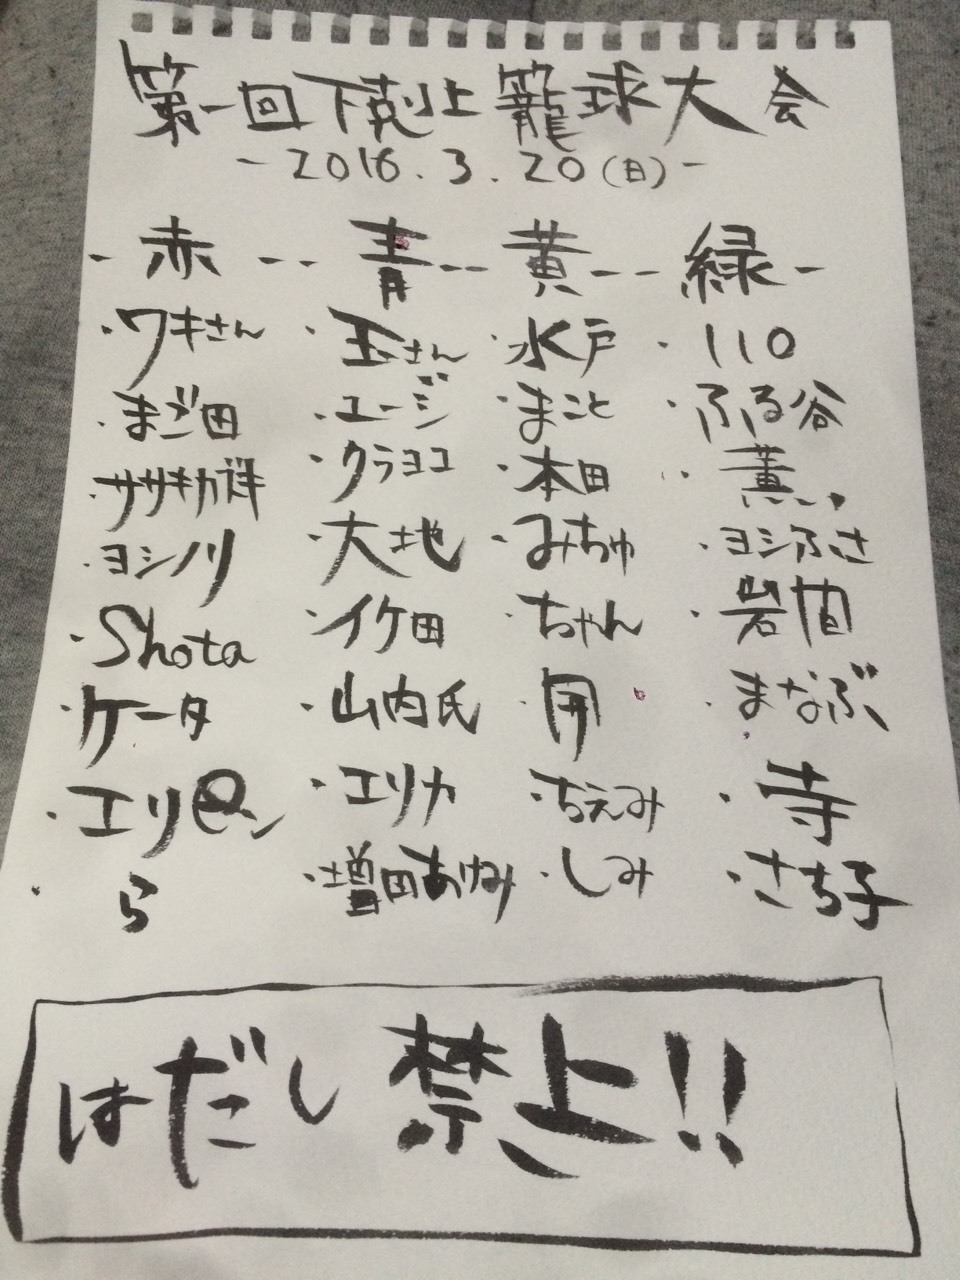 第一回下剋上籠球大会
-2016.3.20(日)-
-赤- -青- -黄- -緑-
・ワキさん ・玉さん ・水戸 ・110
・まご田 ・ユージ ・まこと ・ふる谷
・ササキカズキ ・クラヨコ ・本田 ・薫
・ヨシノリ ・大地 ・みちゅ ・ヨシふさ
・Shota ・イケ田 ・ちゃん ・岩間
・ケータ ・山内氏 ・開 ・まなぶ
・エリピン ・エリカ ・ちえみ ・寺
・ら ・増田あけみ ・しみ ・さち子
はだし禁止!!